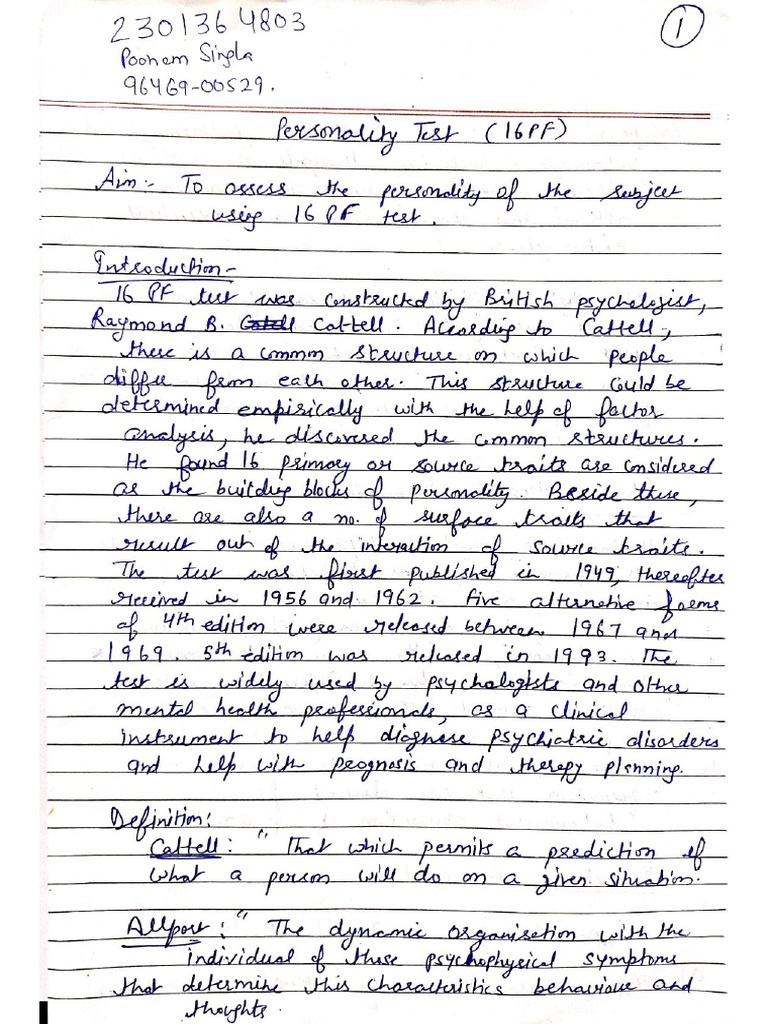 2301364803
Poonam Singla
96469-00529.
1
Personality Test (16PF)
Aim:- To assess the personality of the subject
using 16 PF test.
Introduction-
16 PF test was constructed by British psychologist,
Raymond B. Catell Cattell. According to Cattell,
there is a common structure on which people
differ from each other. This structure could be
determined empirically with the help of factor
analysis, he discovered the common structures.
He found 16 primary or source traits are considered
as the building blocks of personality. Beside these,
there are also a no. of surface traits that
result out of the interaction of source traits.
The test was first published in 1949, thereafter
received in 1956 and 1962. Five alternative forms
of 4th edition were released between 1967 and
1969. 5th edition was released in 1993. The
test is widely used by psychologists and other
mental health professionals, as a clinical
instrument to help diagnose psychiatric disorders
and help with prognosis and therapy planning.
Definition:
Cattell: "That which permits a prediction of
what a person will do on a given situation.
Allport: "The dynamic organisation with the
individual of those psychophysical symptoms
that determine this characteristics behaviour and
thoughts.